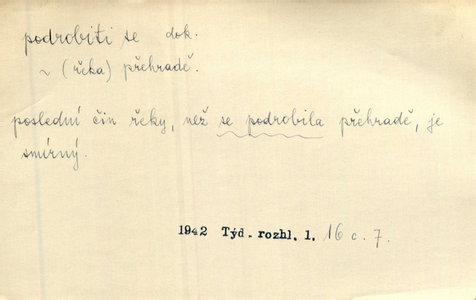 podrobiti se dok.
~ (řeka) přehradě.
poslední čin řeky, než se podrobila přehradě, je
smírný.
1942 Týd. rozhl. 1. 16 c. 7.